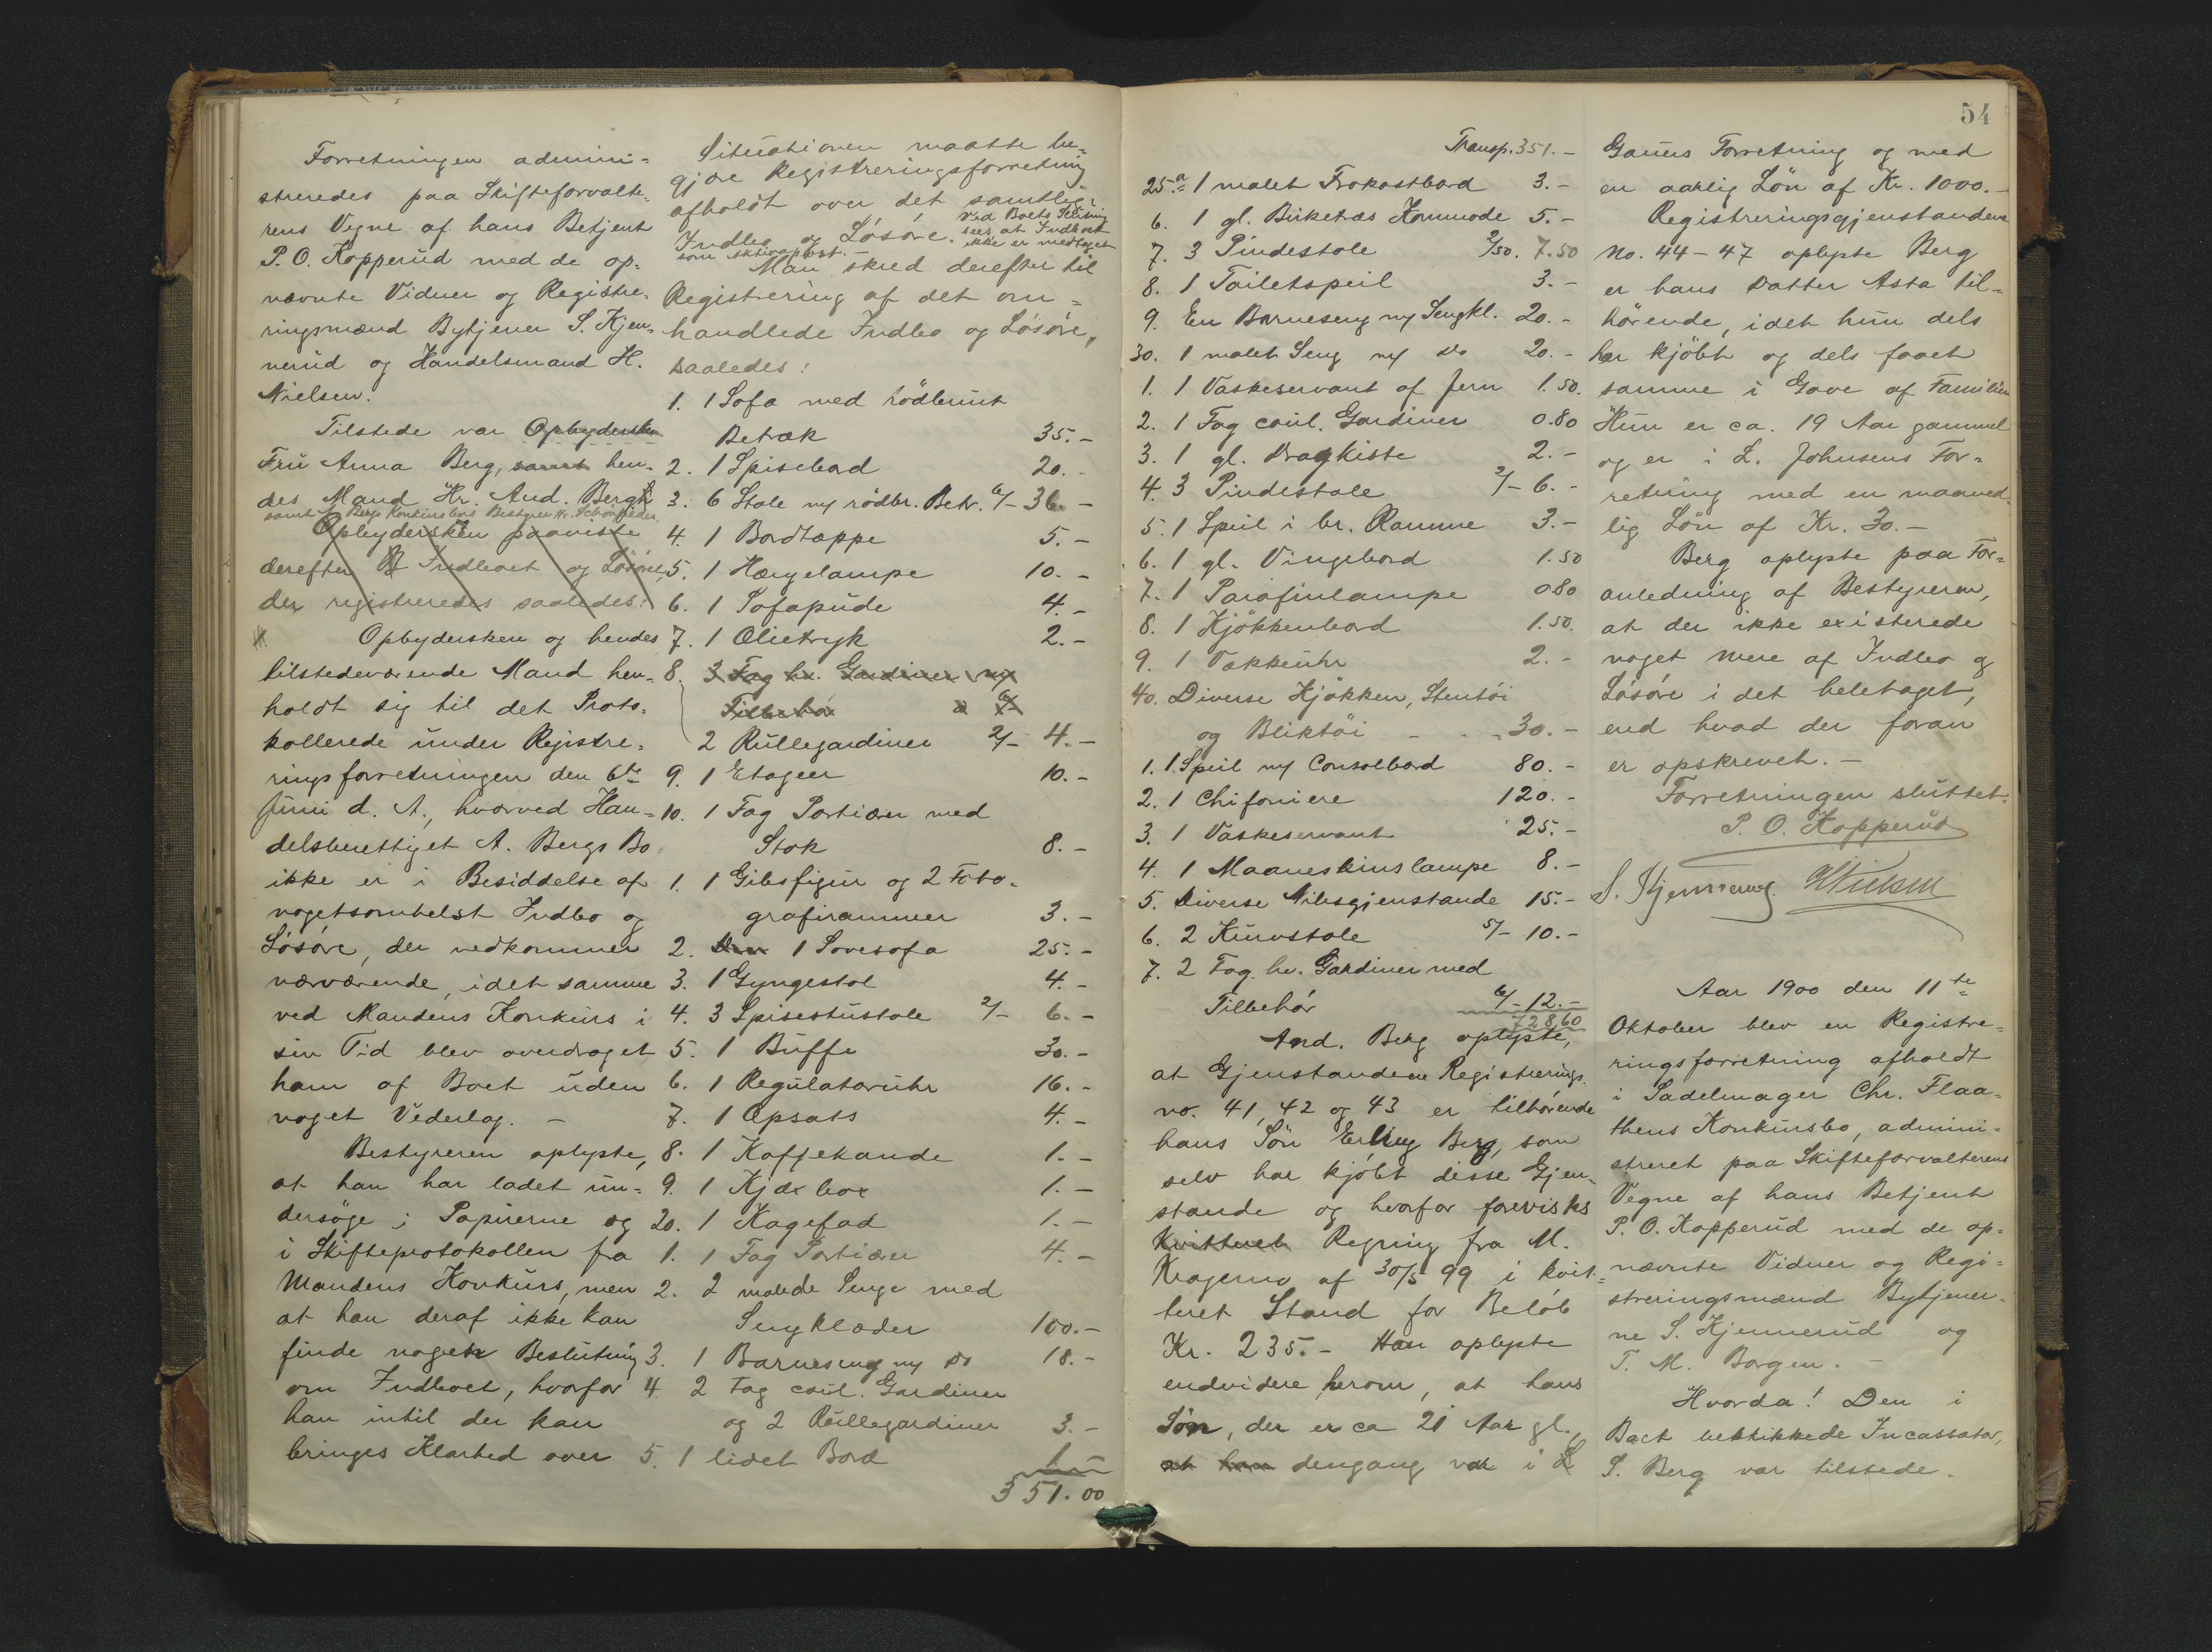 Forretningen admini=
streredes paa Skifteforvalte-
rens Vegne af hans Betjent
P. O. Kopperud med de op=
nævnte Vidner og Registre=
ringsmænd Bytjener S. Kjen=
nerud og Handelsmand H.
Nielsen.
Tilstede var Opbydersken
Fru Anna Berg, samt hen-
des Mand Hr. And. Berg
samt A. Bergs Konkursbos Bestyrer Hr.
Opbydersken paaviste
derefter Indboet og Løsøret,
der registreredes saaledes:
Opbydersken og hendes
tilstedeværende Mand hen=
holdt sig til det Proto=
kollerede under Registre=
ringsforretningen den 6te
Juni d. A., hvorved Han=
delsberettiget A. Bergs Bo
ikke er i Besiddelse af
nogetsomhelst Indbo og
Løsøre, der vedkommer
nærværende, idet samme
ved Mandens Konkurs i
sin Tid blev overdraget
ham af Boet uden
noget Vederlag. –
Bestyreren oplyste,
at han har ladet un=
dersøge i Papirerne og
i Skifteprotokollen fra
Mandens Konkurs, men
at han deraf ikke kan
finde nogen Beslutning
om Indboet, hvorfor
han intil der kan
bringes Klarhed over
Situationen maatte be=
gjøre Registreringsforretning
afholdt over det samtlige
Indbo og Løsøre. Ved Boets Slutning
sees at Indboet
ikke er medtaget
som aktivapost. –
Man skred derefter til
Registrering af det om=
handlede Indbo og Løsøre,
saaledes:
1. 1 Sofa med rødbrunt
Betræk 35.–
2. 1 Spisebord 20.–
3. 6 Stole m/ rødbr. Betr. 6/– 36.–
4. 1 Bordtæppe 5.–
5. 1 Hængelampe 10.–
6. 1 Sofapude 4.–
7. 1 Olietryk 2.–
8. 3 Fag hv. Gardiner m/
Tilbehør a 6/
2 Rullegardiner 2/– 4.–
9. 1 Etageer 10.–
10. 1 Fag Portiærer med
Stok 8.–
1. 1 Gibsfigur og 2 Foto=
grafirammer 3.–
2. 1 Sovesofa 25.–
3. 1 Gyngestol 4.–
4. 3 Spisestustole 2/– 6.–
5. 1 Buffe 30.–
6. 1 Regulatoruhr 16.–
7. 1 Opsats 4.–
8. 1 Kaffekande 1.–
9. 1 Kjæxbox 1.–
20. 1 Kagefad 1.–
1. 1 Fag Portiærer 4.–
2. 2 malede Senge med
Sengklæder 100.–
3. 1 Barneseng m/ do 18.–
4. 2 Fag coul. Gardiner
og 2 Rullegardiner 3.–
5. 1 lidet Bord 1.–
351.00
54
Transp. 351.–
25.a 1 malet Frokostbord 3.–
6. 1 gl. Birketræs Kommode 5.–
7. 3 Pindestole 2/50. 7.50
8. 1 Toiletspeil 3.–
9. En Barneseng m/ Sengkl. 20.–
30. 1 malet Seng m/ do 20.–
1. 1 Vaskeservant af Jern 1.50.
2. 1 Fag coul. Gardiner 0.80
3. 1 gl. Dragkiste 2.–
4. 3 Pindestole 2/– 6.–
5. 1 Speil i br. Ramme 3.–
6. 1 gl. Vingebord 1.50
7. 1 Parafinlampe 0.80
8. 1 Kjøkkenbord 1.50.
9. 1 Vækkeuhr 2.–
40. Diverse Kjøkken, Stentøi
og Bliktøi – – 30.–
1. 1 Speil m/ Consolbord 80.–
2. 1 Chifoniere 120.–
3. 1 Vaskeservant 25.–
4. 1 Maaneskinslampe 8.–
5. Diverse Nibsgjenstande 15.–
6. 2 Kurvstole 5/– 10.–
7. 2 Fag hv. Gardiner med
Tilbehør 6/– 12.–
728,60
And. Berg oplyste,
at Gjenstandene Registrerings-
no. 41, 42 og 43 er tilhørende
hans Søn Erling Berg, som
selv har kjøbt disse Gjen-
stande og hvorfor forevistes
kvitteret Regning fra M.
Kragerud af 30/5 99 i kvit=
teret Stand for Beløb
Kr. 235.– Han oplyste
endvidere herom, at hans
Søn, der er ca 21 Aar gl.,
at han dengang var i L
Gauers Forretning og med
en aarlig Løn af Kr. 1000.–
Registreringsgjenstandene
No. 44–47 oplyste Berg
er hans Datter Asta til=
hørende, idet hun dels
har kjøbt og dels faaet
samme i Gave af Familien
Hun er ca. 19 Aar gammel
og er i L. Johnsens For=
retning med en maaned-
lig Løn af Kr. 30.–
Berg oplyste paa For=
anledning af Bestyreren,
at der ikke existerede
noget mere af Indbo og
Løsøre i det heletaget,
end hvad der foran
er opskrevet. –
Forretningen sluttet.
P. O. Kopperud
S. Kjennerud. HNielsen
Aar 1900 den 11te
Oktober blev en Registre=
ringsforretning afholdt
i Sadelmager Chr. Flaa=
thens Konkursbo, admini=
streret paa Skifteforvalterens
Vegne af hans Betjent
P. O. Kopperud med de op=
nævnte Vidner og Regi=
streringsmænd Bytjener-
ne S. Kjennerud og
T. M. Borgen. –
Hvorda! Den i
Boet beskikkede Incassator,
S. Berg var tilstede.